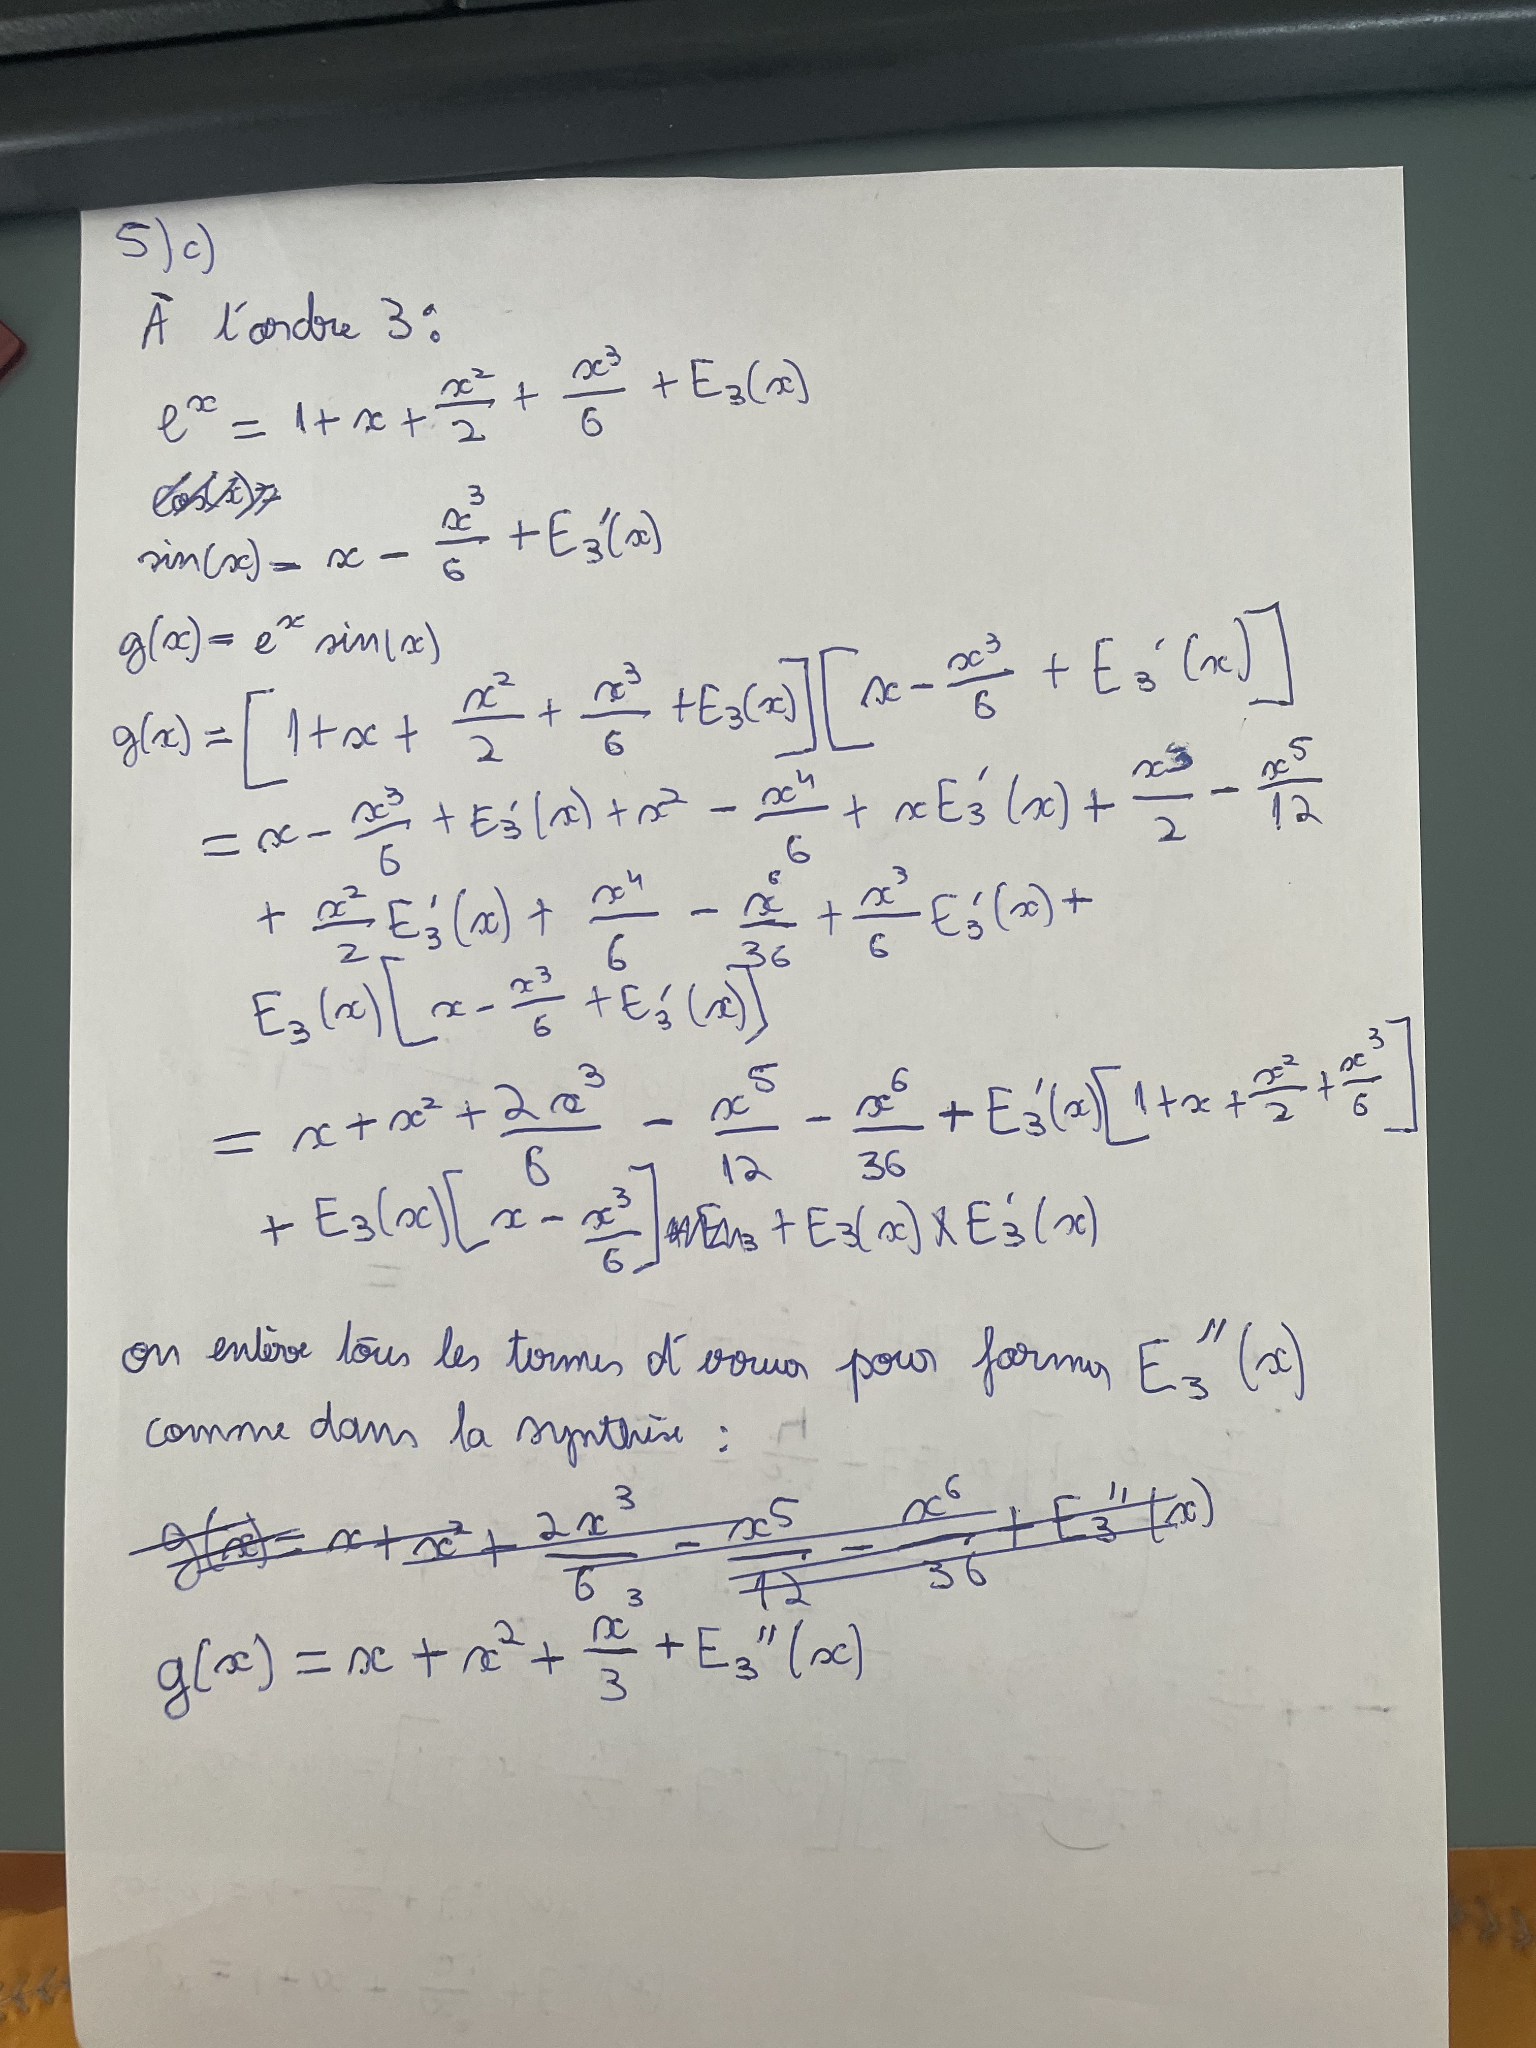 5) c)
À l'ordre 3 :
e^x = 1 + x + x²/2 + x³/6 + E₃(x)
cos(x) =
sin(x) = x - x³/6 + E₃'(x)
g(x) = e^x sin(x)
g(x) = [1 + x + x²/2 + x³/6 + E₃(x)] [x - x³/6 + E₃'(x)]
= x - x³/6 + E₃'(x) + x² - x⁴/6 + xE₃'(x) + x³/2 - x⁵/12
+ x²/2 E₃'(x) + x⁴/6 - x⁶/36 + x³/6 E₃'(x) +
E₃(x) [x - x³/6 + E₃'(x)]
= x + x² + 2x³/6 - x⁵/12 - x⁶/36 + E₃'(x) [1 + x + x²/2 + x³/6]
+ E₃(x) [x - x³/6] + E₃(x) × E₃'(x)
on enlève tous les termes d'erreur pour former E₃''(x)
comme dans la synthèse :
g(x) = x + x² + 2x³/6 - x⁵/12 - x⁶/36 + E₃''(x)
g(x) = x + x² + x³/3 + E₃''(x)